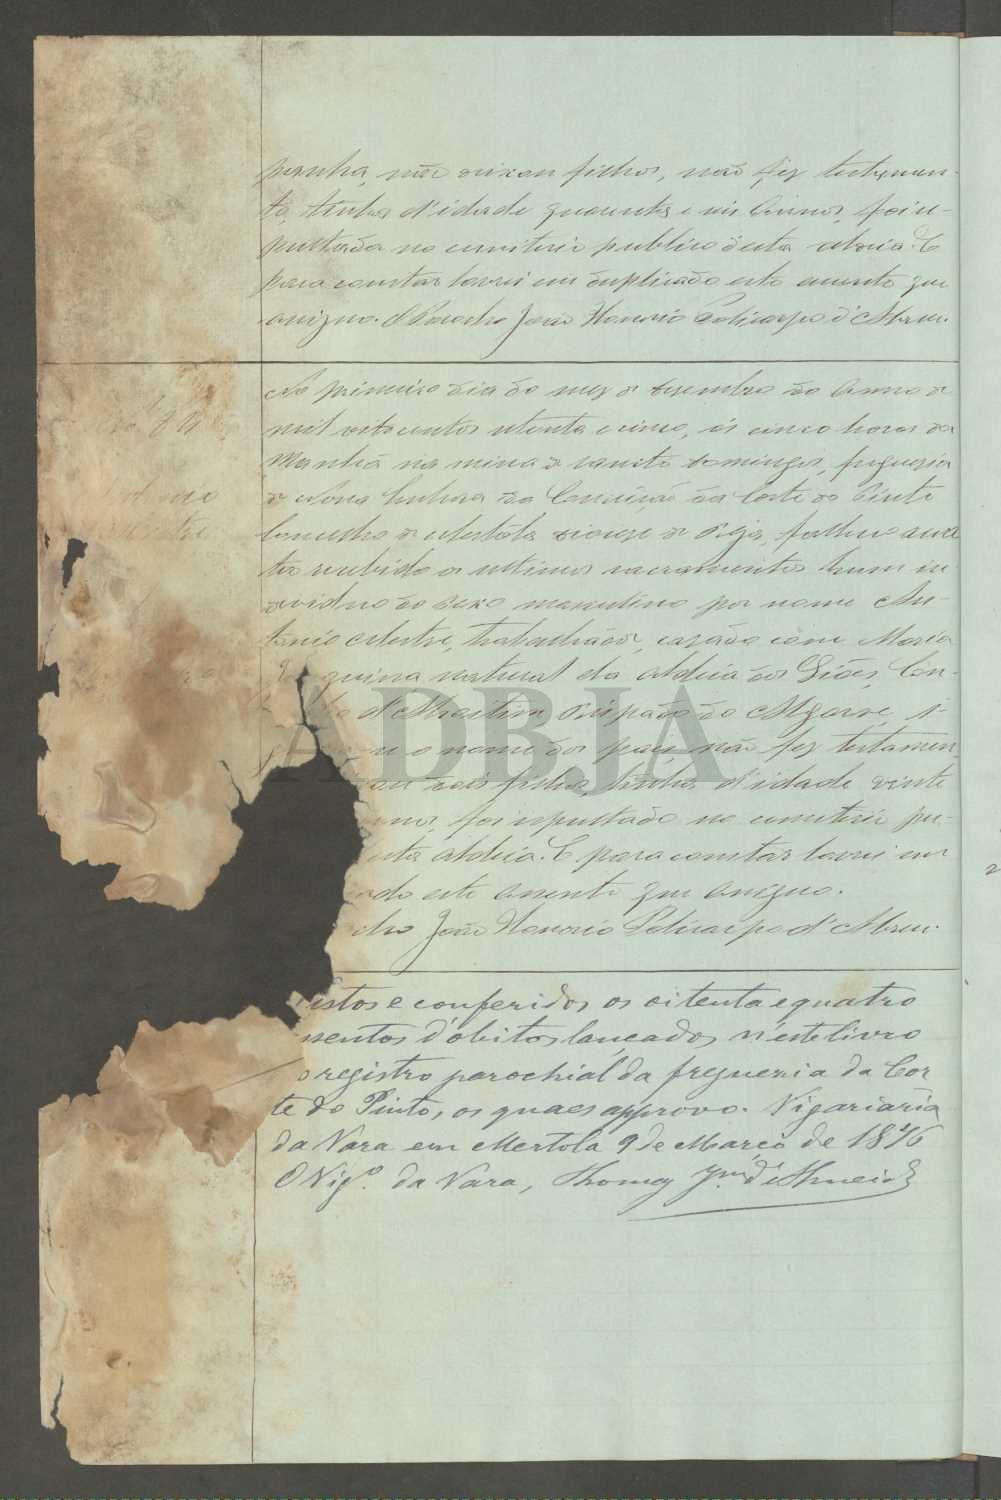 panha, não deixou filhos, não fez testamen-
to, tinha d'idade quarenta e seis annos, foi se-
pultada no cemiterio publico desta aldeia. E
para constar lavrei em duplicado este assento que
assigno. O Parocho João Honorio Policarpo d'Abreu.
No primeiro dia do mez de desembro do anno de
mil oito centos oitenta e cinco, ás cinco horas da
manhã na mina de sancto domingos, freguesia
de Nossa Senhora da Conceição da Corte do Pinto
Concelho de Mertola diocese de Beja, falleceu
ter recebido os ultimos sacramentos hum in-
dividuo do sexo masculino por nome An-
tonio Silvestre, trabalhador, casado com Maria
natural da aldeia dos Giões, Con-
d'Alcoutim Bispado do Algarve, i-
o nome dos pais, não fez testamen
dois filhos, tinha d'idade vinte
foi sepultado no cemiterio pu-
desta aldeia. E para constar lavrei em
cado este assento que assigno.
cho João Honorio Policarpo d'Abreu.
Vistos e conferidos os oitenta e quatro
ssentos d'obitos lançados n'este livro
o registro parochial da freguezia da Cor
te do Pinto, os quaes approvo. Vigariaria
da Vara em Mertola 9 de Março de 1886
O Vigº. da Vara, Thomaz d'Almeida
Antonio
Silvestre
ADBJA